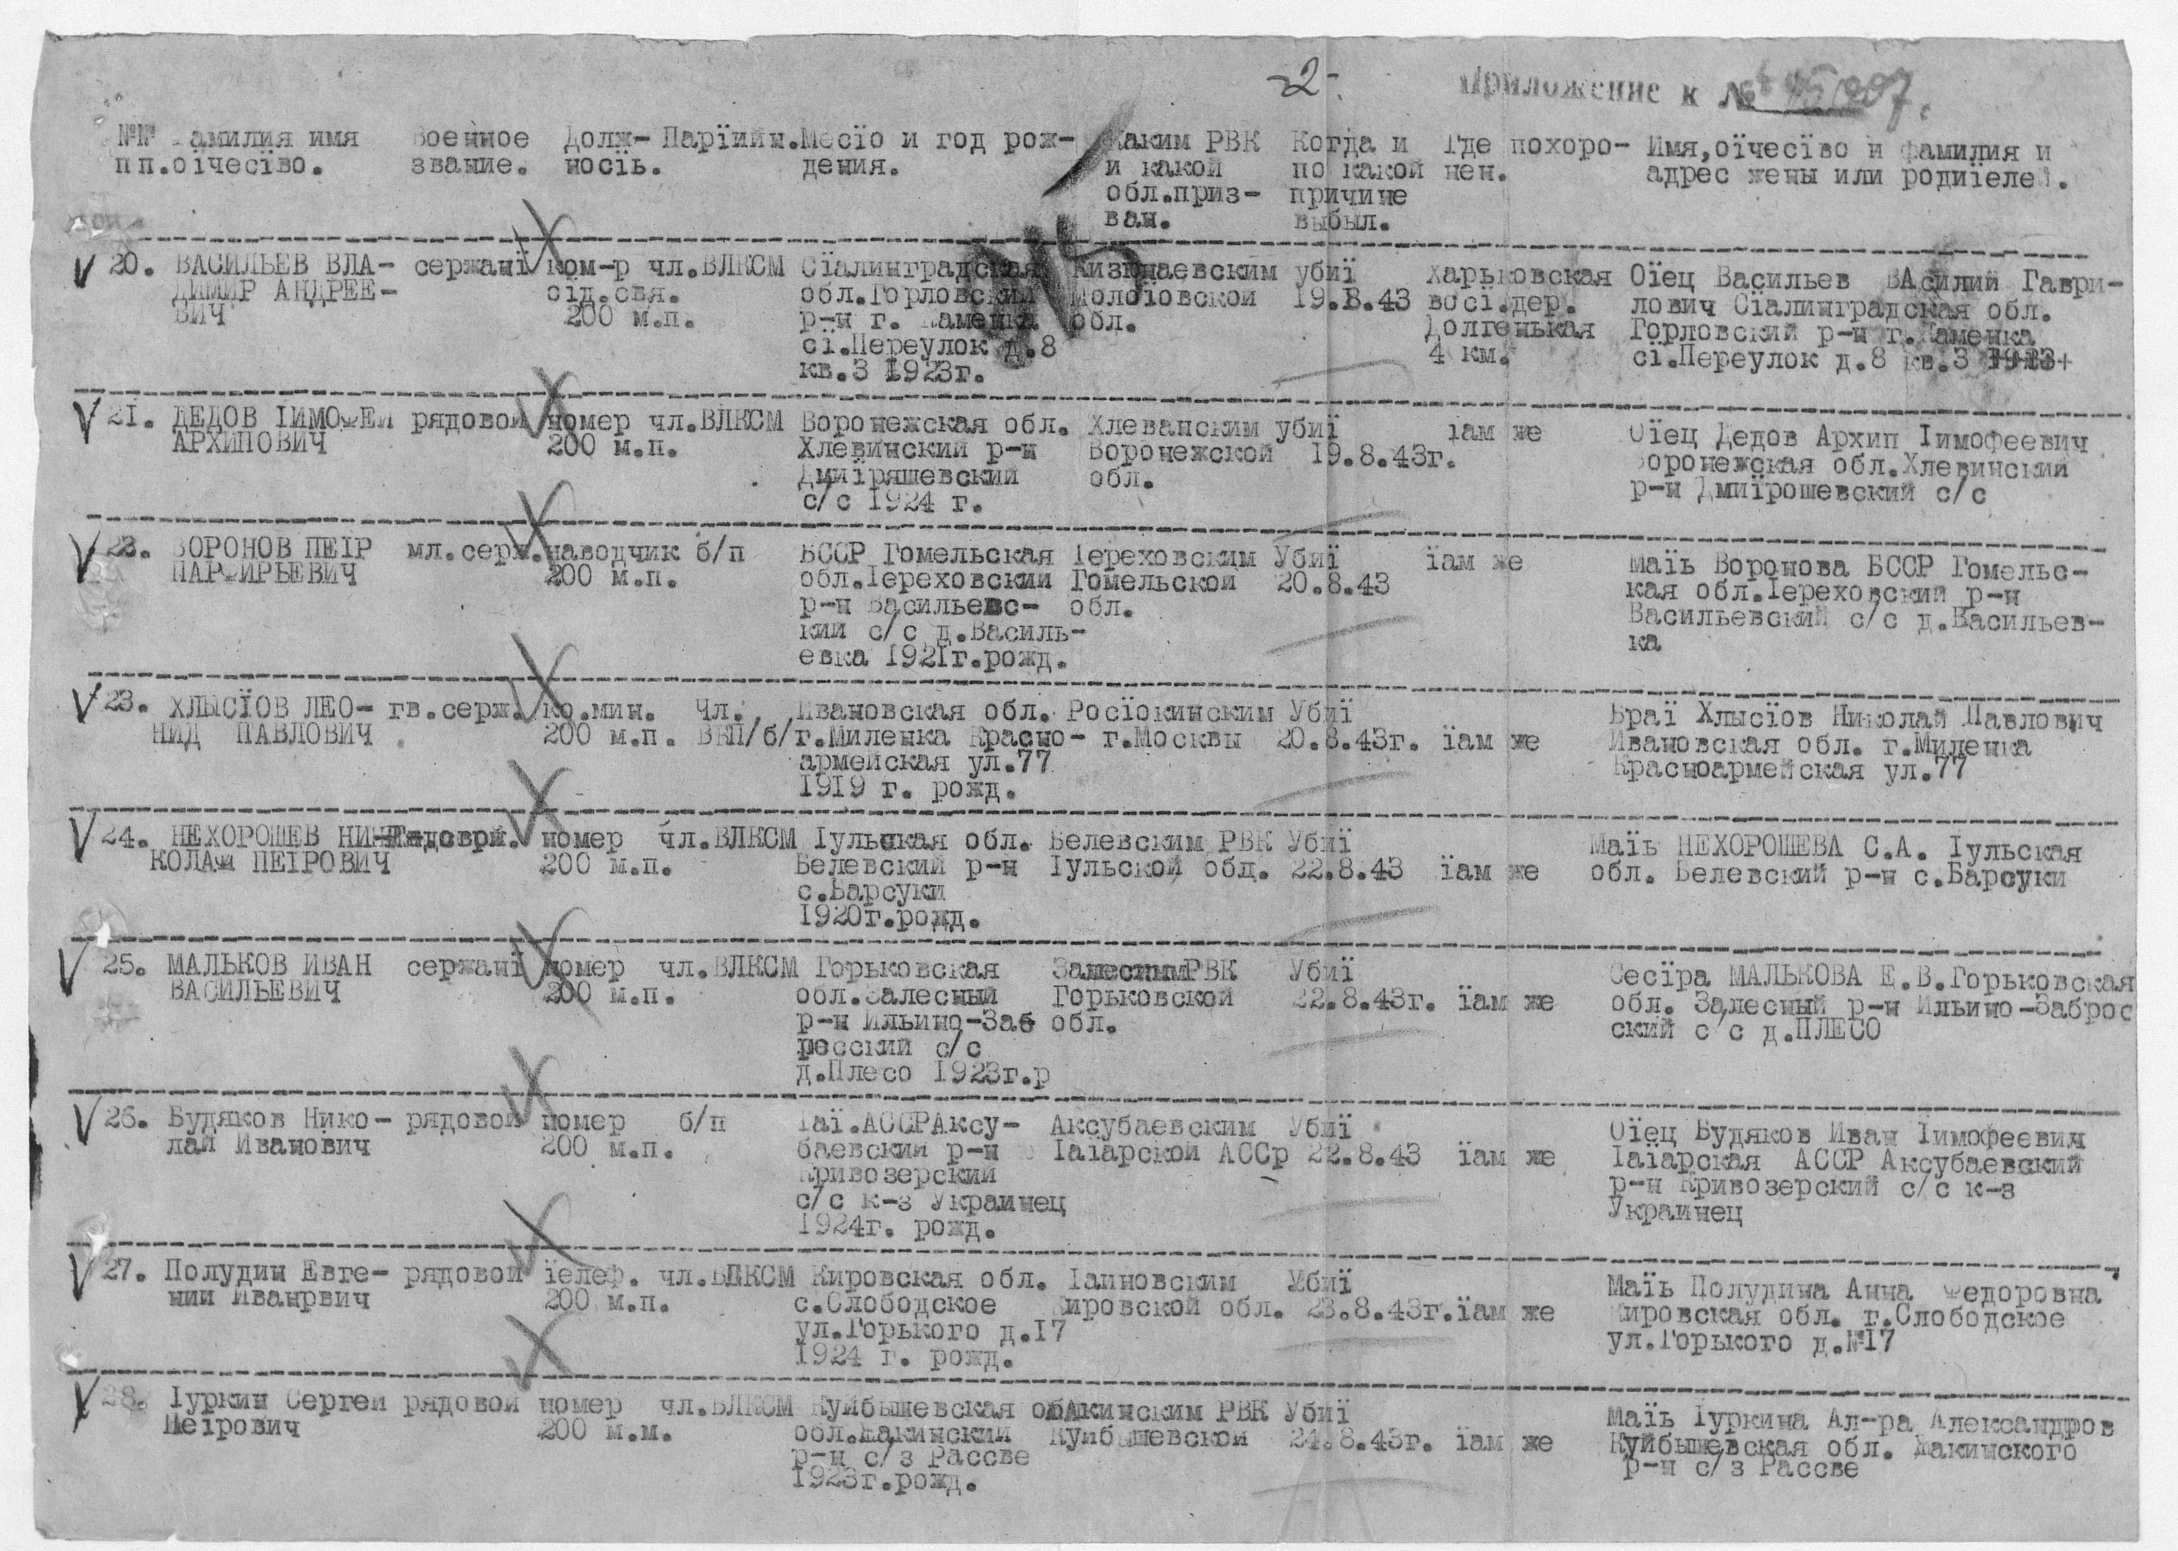 -2-
Приложение к №
№№ Фамилия имя Военное Долж- Партийн. Место и год рож- Каким РВК Когда и Где похоро- Имя, отчество и фамилия и
п п. отчество. звание. ность. дения. и какой по какой нен. адрес жены или родителей.
обл.приз- причине
ван. выбыл.
20. ВАСИЛЬЕВ ВЛА- сержант ком-р чл.ВЛКСМ Сталинградская Кизинаевским убит Харьковская Отец Васильев ВАсилий Гаври-
ДИМИР АНДРЕЕ- отд.свя. обл.Горловский Молотовской 19.8.43 вост.дер. лович Сталинградская обл.
ВИЧ 200 м.п. р-н г. Каменка обл. Долгенькая Горловский р-н г.Каменка
ст.Переулок д.8 4 км. ст.Переулок д.8 кв.3 1923
кв.3 1923г.
21. ДЕДОВ ТИМОФЕЙ рядовой номер чл.ВЛКСМ Воронежская обл. Хлеванским убит там же Отец Дедов Архип Тимофеевич
АРХИПОВИЧ 200 м.п. Хлевинский р-н Воронежской 19.8.43г. Воронежская обл.Хлевинский
Дмитряшевский обл. р-н Дмитрошевский с/с
с/с 1924 г.
22. ВОРОНОВ ПЕТР мл.серж. наводчик б/п БССР Гомельская Тереховским Убит там же Мать Воронова БССР Гомельс-
ПАРФИРЬЕВИЧ 200 м.п. обл.Тереховский Гомельской 20.8.43 кая обл.Тереховский р-н
р-н Васильевс- обл. Васильевский с/с д.Васильев-
кий с/с д.Василь- ка
евка 1921г.рожд.
23. ХЛЫСТОВ ЛЕО- гв.серж. ко.мин. Чл. Ивановская обл. Ростокинским Убит Брат Хлыстов Николай Павлович
НИД ПАВЛОВИЧ 200 м.п. ВКП/б/ г.Миленка Красно- г.Москвы 20.8.43г. там же Ивановская обл. г.Миленка
армейская ул.77 Красноармейская ул.77
1919 г. рожд.
24. НЕХОРОШЕВ НИ- Рядовой. номер чл.ВЛКСМ Тульская обл. Белевским РВК Убит Мать НЕХОРОШЕВА С.А. Тульская
КОЛАЙ ПЕТРОВИЧ 200 м.п. Белевский р-н Тульской обл. 22.8.43 там же обл. Белевский р-н с.Барсуки
с.Барсуки
1920г.рожд.
25. МАЛЬКОВ ИВАН сержант номер чл.ВЛКСМ Горьковская Залесным РВК Убит Сестра МАЛЬКОВА Е.В.Горьковская
ВАСИЛЬЕВИЧ 200 м.п. обл.Залесный Горьковской 22.8.43г. там же обл. Залесный р-н Ильино-Заброс
р-н Ильино-Заб обл. ский с/с д.ПЛЕСО
росский с/с
д.Плесо 1923г.р
26. Будяков Нико- рядовой номер б/п Тат.АССРАксу- Аксубаевским Убит Отец Будяков Иван Тимофеевич
лай Иванович 200 м.п. баевский р-н Татарской АССр 22.8.43 там же Татарская АССР Аксубаевский
Кривозерский р-н Кривозерский с/с к-з
с/с к-з Украинец Украинец
1924г. рожд.
27. Полудин Евге- рядовой телеф. чл.ВЛКСМ Кировская обл. Таиновским Убит Мать Полудина Анна Федоровна
ний Иванрвич 200 м.п. с.Слободское Кировской обл. 23.8.43г. там же Кировская обл. г.Слободское
ул.Горького д.17 ул.Горького д.№17
1924 г. рожд.
28. Туркин Сергей рядовой номер чл.ВЛКСМ Куйбышевская Шакинским РВК Убит Мать Туркина Ал-ра Александров
Петрович 200 м.м. обл.Шакинский Куйбышевской 24.8.43г. там же Куйбышевская обл. Шакинского
р-н с/з Рассве р-н с/з Рассве
1923г.рожд.